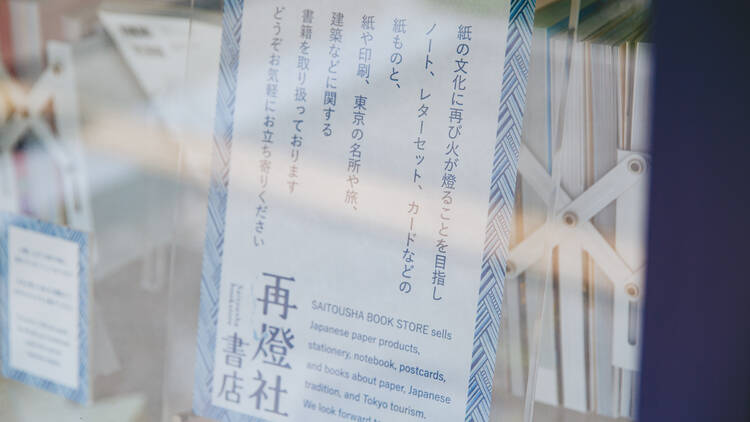 紙の文化に再び火が燈ることを目指し
ノート、レターセット、カードなどの
紙ものと、
紙や印刷、東京の名所や旅、
建築などに関する
書籍を取り扱っております
どうぞお気軽にお立ち寄りください
再燈社
書店
Saitousha
bookstore
SAITOUSHA BOOK STORE sells
Japanese paper products,
stationery, notebook, postcards,
and books about paper, Japanese
tradition, and Tokyo tourism.
We look forward